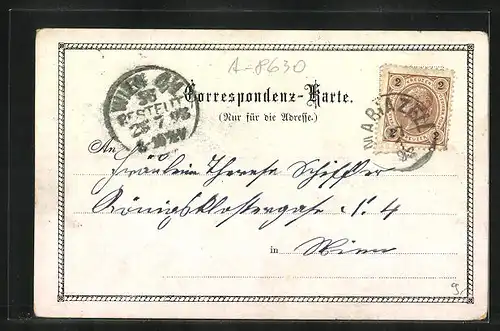 A-8630
WIEN
BESTELLT
Correspondenz-Karte.
(Nur für die Adresse.)
2 2
2 2
MARIAZELL
An Fräulein Therese Schiffler
Königsklostergasse N. 4
in Wien